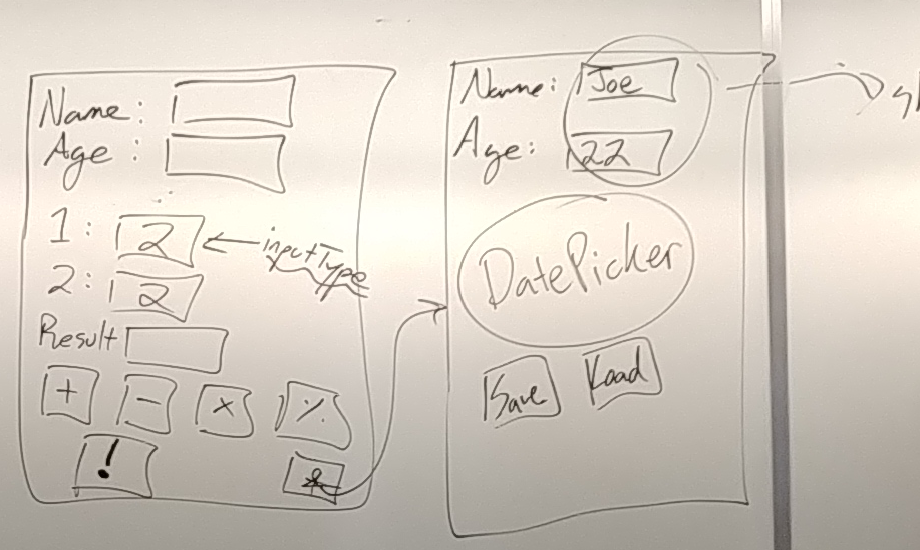 Name:
Age:
1: 2
inputType
2: 2
Result
+ - x
!
Name: Joe
Age: 22
DatePicker
Save